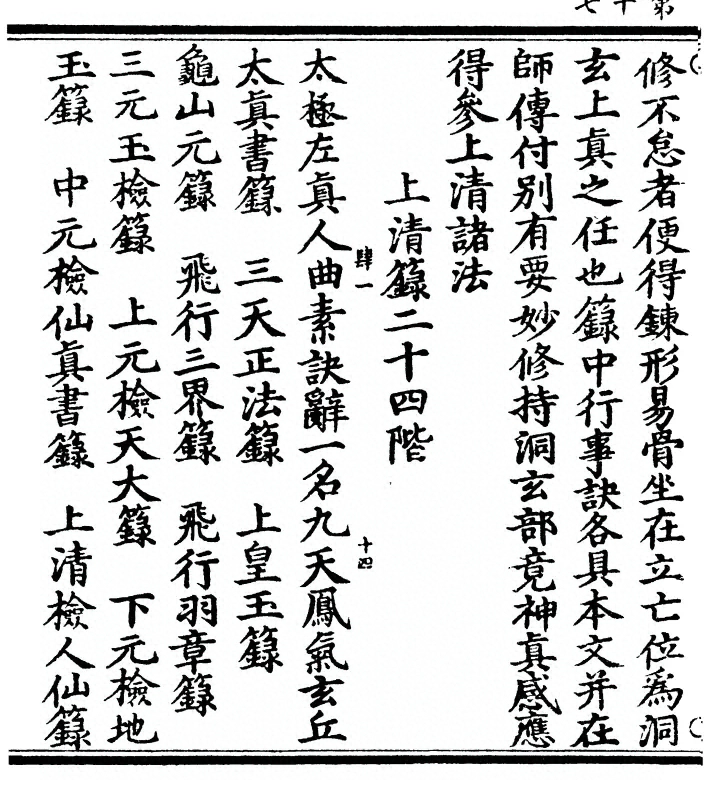 第十七
修不怠者便得鍊形易骨坐在立亡位爲洞
玄上眞之任也籙中行事訣各具本文并在
師傳付别有要妙修持洞玄部竟神眞感應
得參上清諸法
上清籙二十四階
肆一
十四
太極左眞人曲素訣辭一名九天鳳氣玄丘
太眞書籙 三天正法籙 上皇玉籙
龜山元籙 飛行三界籙 飛行羽章籙
三元玉檢籙 上元檢天大籙 下元檢地
玉籙 中元檢仙眞書籙 上清檢人仙籙